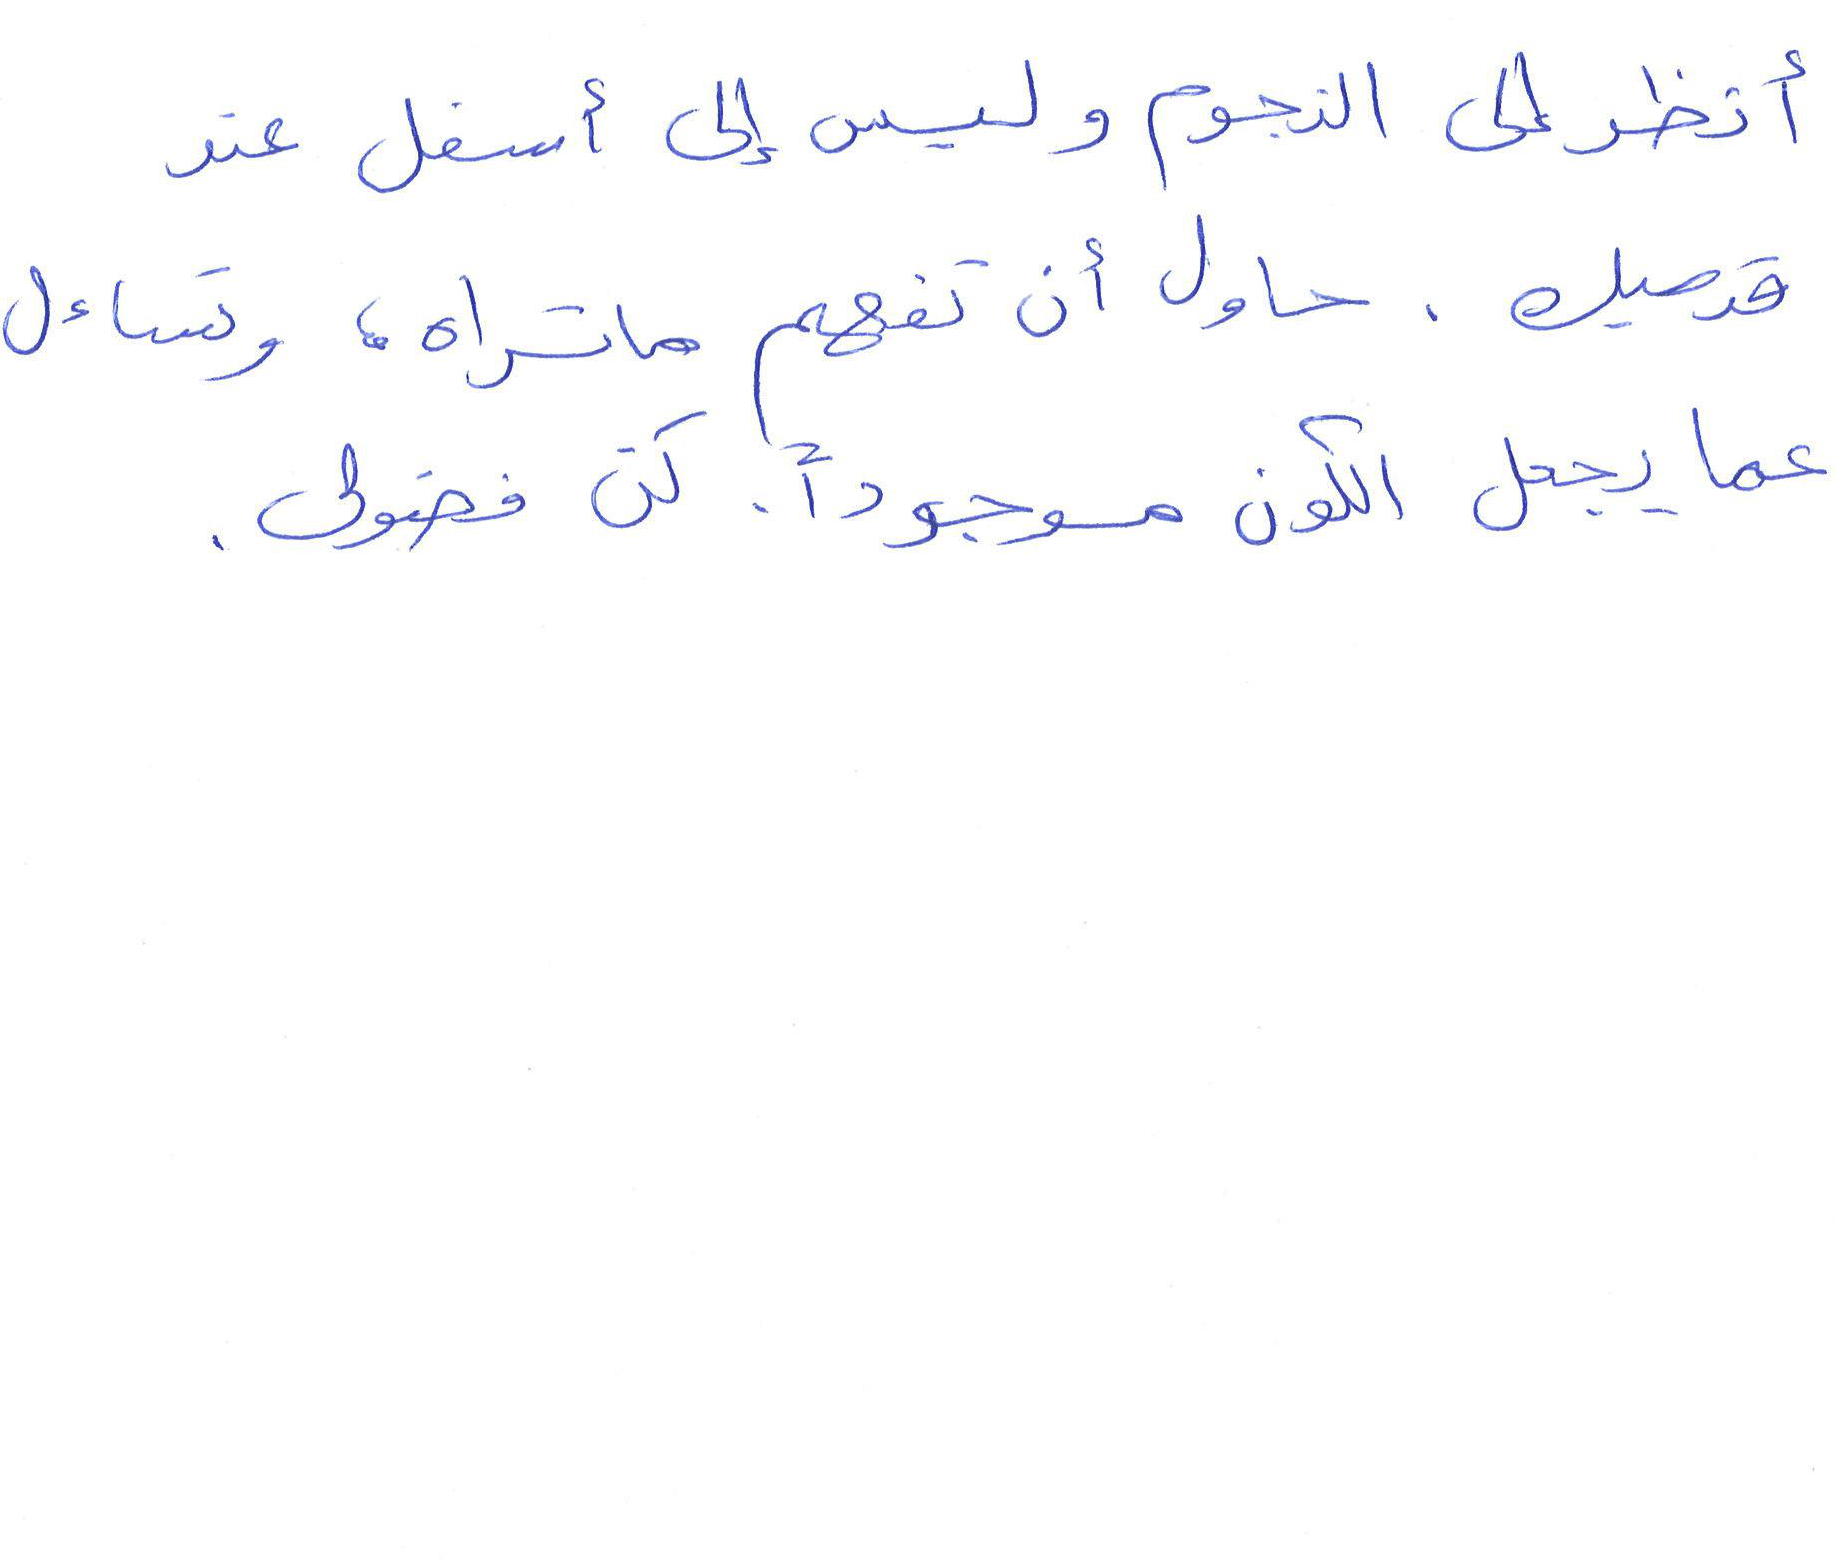 أنظر إلى النجوم وليس إلى أسفل عند
قدميك . حاول أن تفهم ماتراه، وتساءل
عما يجعل الكون موجوداً. كن فضولى .